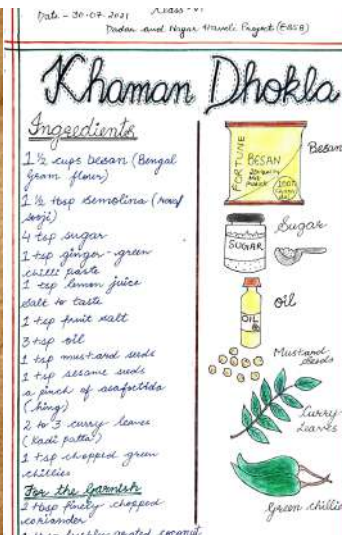 Date - 30-07-2021
Class - VI
Dadar and Nagar Haveli Project (EBSB)
Khaman Dhokla
Ingredients
1 ½ cups besan (Bengal
gram flour)
1 ½ tsp semolina (rava/
sooji)
4 tsp sugar
1 tsp ginger-green
chilli paste
1 tsp lemon juice
salt to taste
1 tsp fruit salt
3 tsp oil
1 tsp mustard seeds
1 tsp sesame seeds
a pinch of asafoetida
(hing)
2 to 3 curry leaves
(Kadi patta)
1 tsp chopped green
chillies
For the Garnish
2 tbsp finely chopped
coriander
freshly grated coconut
FORTUNE
BESAN
100%
Besan
SUGAR
Sugar
OIL
oil
Mustard
seeds
Curry
Leaves
Green chillies